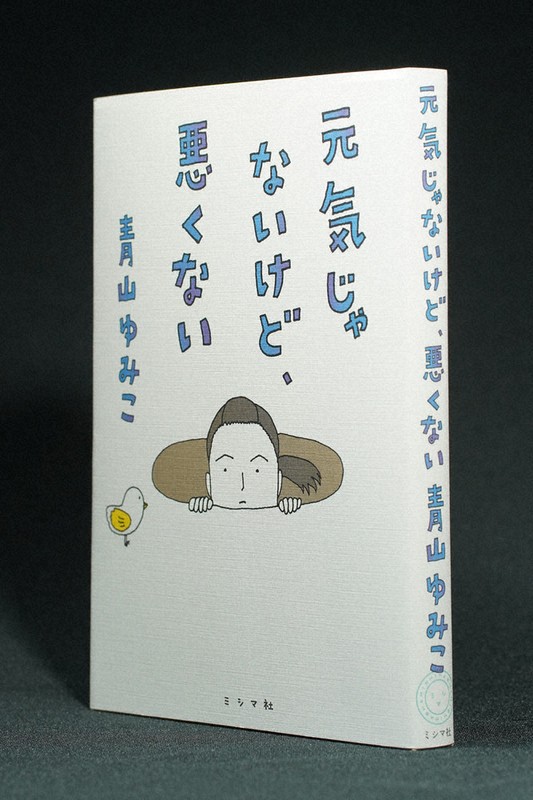 元気じゃ
ないけど、
悪くない
青山ゆみこ
ミシマ社
元気じゃないけど、悪くない 青山ゆみこ
ミシマ社